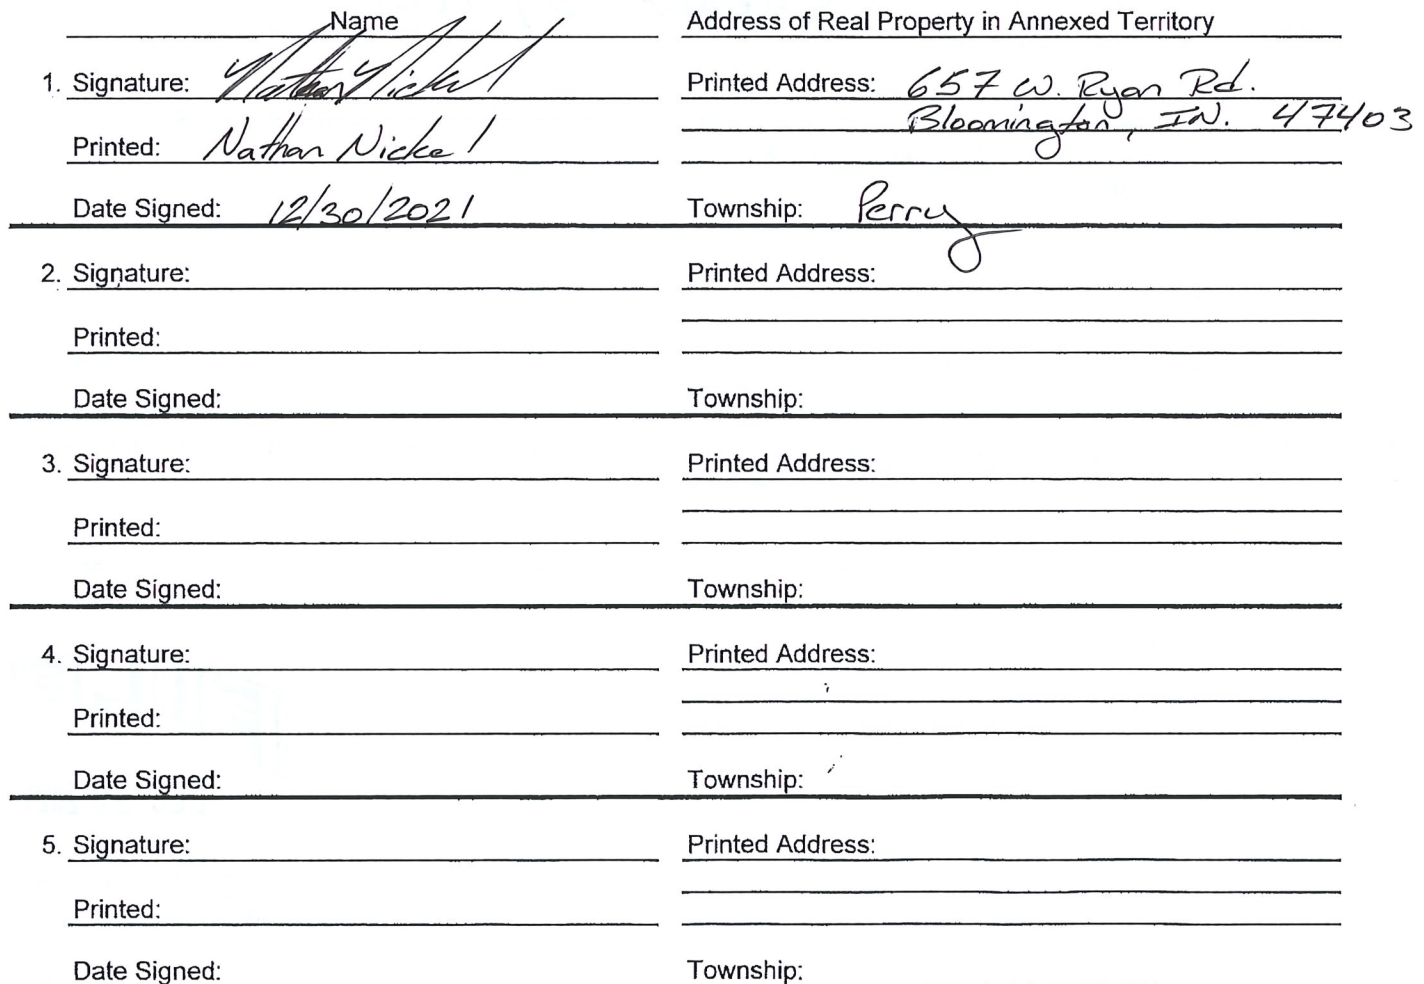 Name Address of Real Property in Annexed Territory
1. Signature: Nathan Nickel Printed Address: 657 W. Ryan Rd.
Bloomington, IN. 47403
Printed: Nathan Nickel
Date Signed: 12/30/2021 Township: Perry
2. Signature: Printed Address:
Printed:
Date Signed: Township:
3. Signature: Printed Address:
Printed:
Date Signed: Township:
4. Signature: Printed Address:
Printed:
Date Signed: Township:
5. Signature: Printed Address:
Printed:
Date Signed: Township: